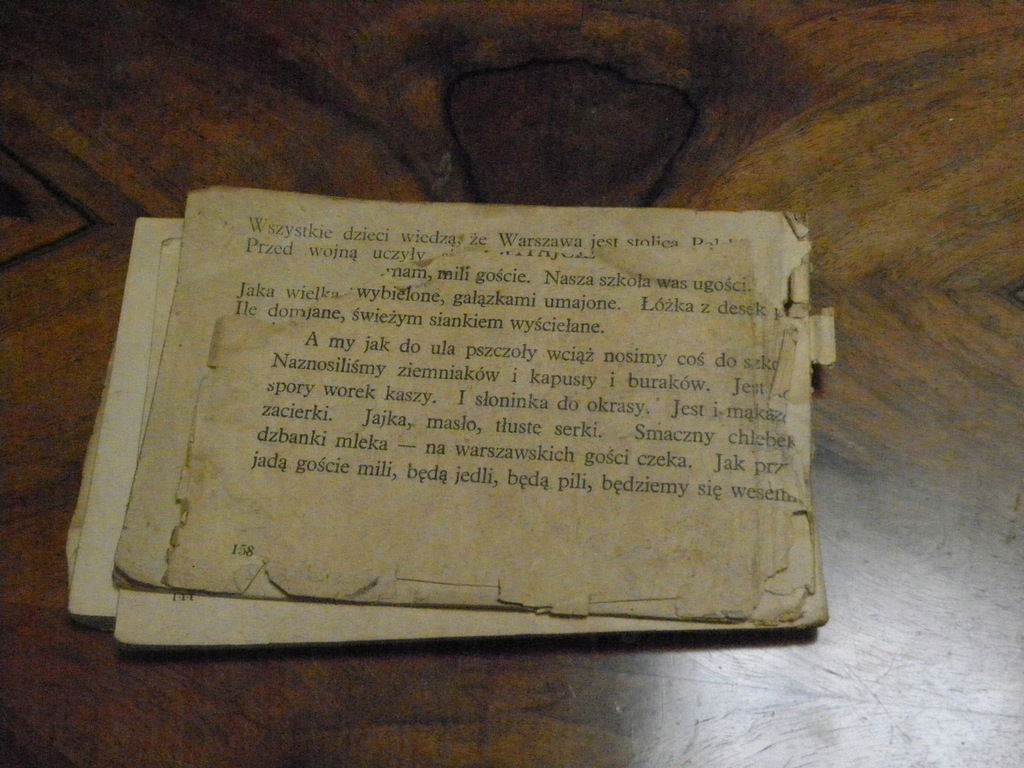 Wszystkie dzieci wiedzą, że Warszawa jest stolicą
Przed wojną uczyły
mili goście. Nasza szkoła was ugości.
Jaka wielka wybielone, gałązkami umajone. Łóżka z desek
Ile świeżym siankiem wyściełane.
A my jak do ula pszczoły wciąż nosimy coś do
Naznosiliśmy ziemniaków i kapusty i buraków. Jest
spory worek kaszy. I słoninka do okrasy. Jest i mąka
zacierki. Jajka, masło, tłuste serki. Smaczny chlebek
dzbanki mleka — na warszawskich gości czeka. Jak
jadą goście mili, będą jedli, będą pili, będziemy się
158